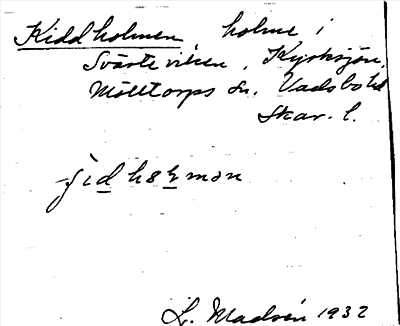 Kiddholmen, holme i
Svarteviken, Kyrksjön,
Mölltorps sn. Vadsbo hd
Skar. l.
L. Madsén 1932